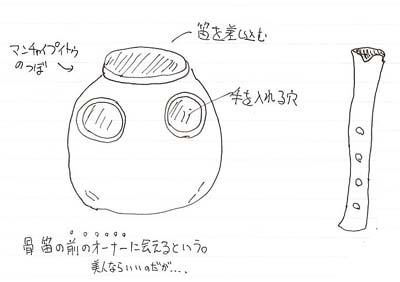 笛を差し込む
マンチャイプイトゥ
のつぼ
手を入れる穴
骨笛の前のオーナーに会えるという。
美人ならいいのだが....